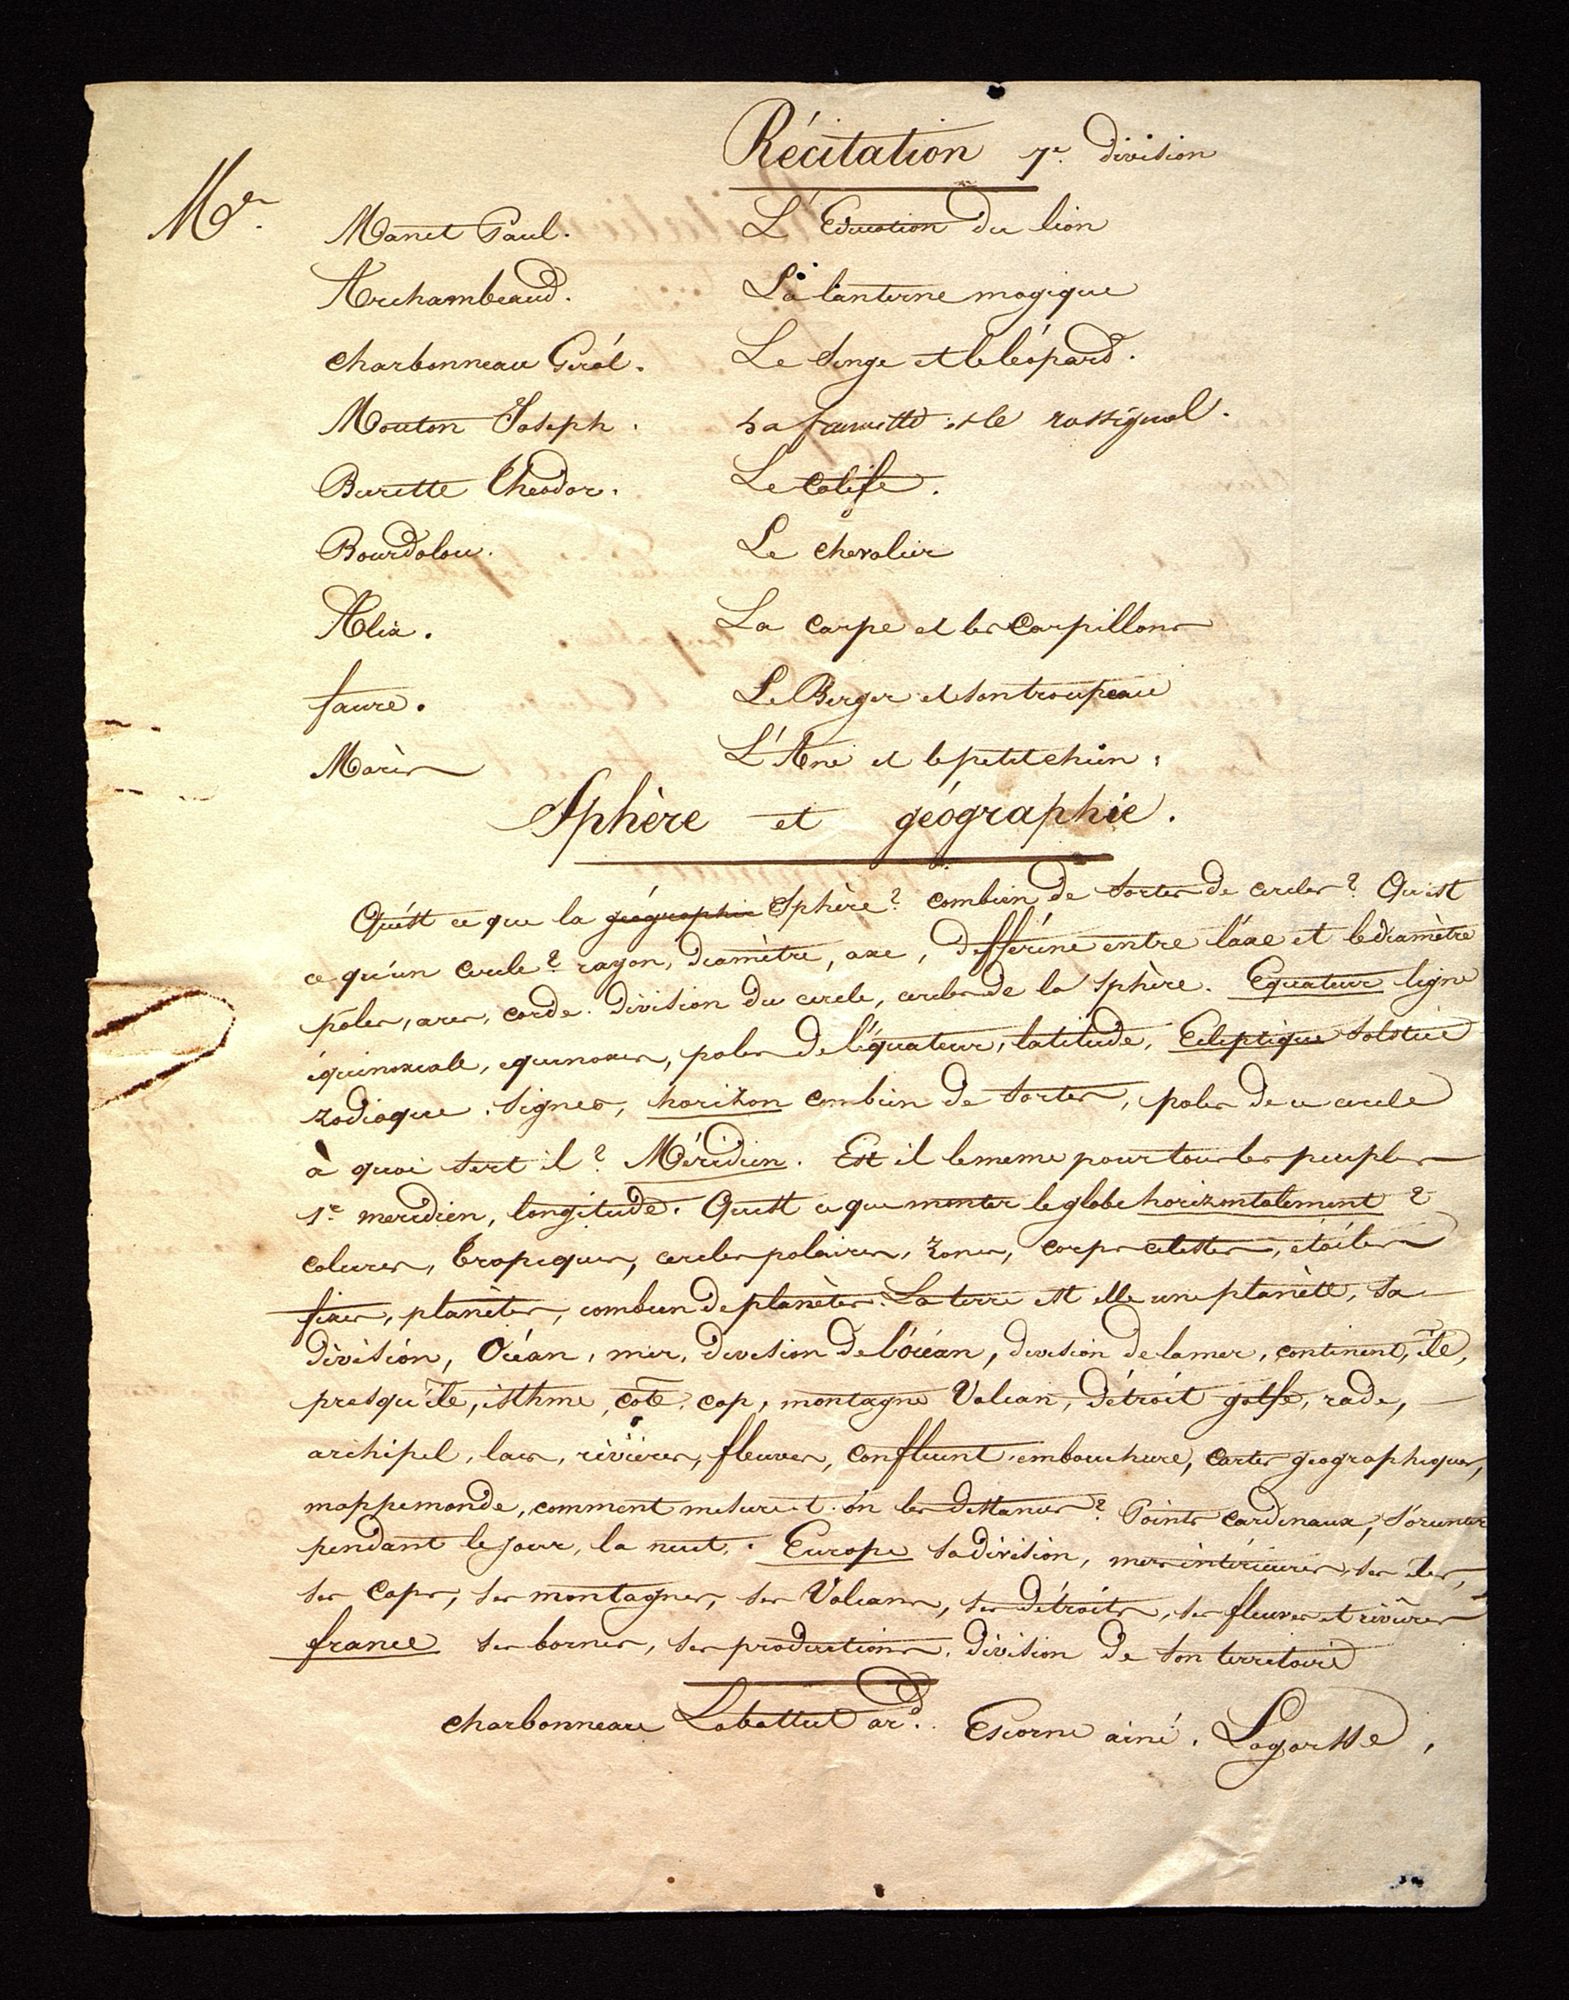 Récitation 7e division
Mrs.
Manet Paul. L'Education du lion
Archambeaud. La lanterne magique
Charbonneau Géral. Le Singe et le léopard.
Mouton Joseph. La fauvette et le rossignol.
Burette Theodor. Le Calife.
Bourdolou. Le chevalier
Alix. La carpe et les Carpillons
faure. Le Berger et son troupeau
Morès L'Ane et le petit chien.
Sphère et géographie.
Qu'est ce que la géographie Sphère? combien de sortes de cercles? Qu'est
ce qu'un cercle? rayon, diamètre, axe, differéne entre l'axe et le diamètre
pôles, arcs, corde. division du cercle, cercles de la sphère. Equateur ligne
équinoxiale, equinoxes, poles de l'équateur, latitude, Ecliptique solstice
zodiaque. signes, horizon combien de sortes, poles de ce cercle
à quoi sert il? Méridien. Est il le meme pour tous les peuples
1er meridien, longitude. Qu'est ce que monter le globe horizontalement?
colures, tropiques, cercles polaires, zones, corps celestes, étoiles
fixes, planètes, combien de planètes. La terre est elle une planète, sa
division, Océan, mer, division de l'océan, division de la mer, continent, île,
presqu'île, isthme, côte, cap, montagne Volcan, détroit golfe, rade,
archipel, lacs, rivières, fleuves, confluent, embouchure, cartes geographiques,
mappemonde, comment mesure-t-on les distances? Points cardinaux, s'orienter
pendant le jour, la nuit. Europe sa division, mers intérieures, ses iles,
ses caps, ses montagnes, ses Volcans, ses détroits, ses fleuves et rivières
france ses bornes, ses productions, division de son territoire
Charbonneau Labattut ard. Escorne ainé. Lagarsse,